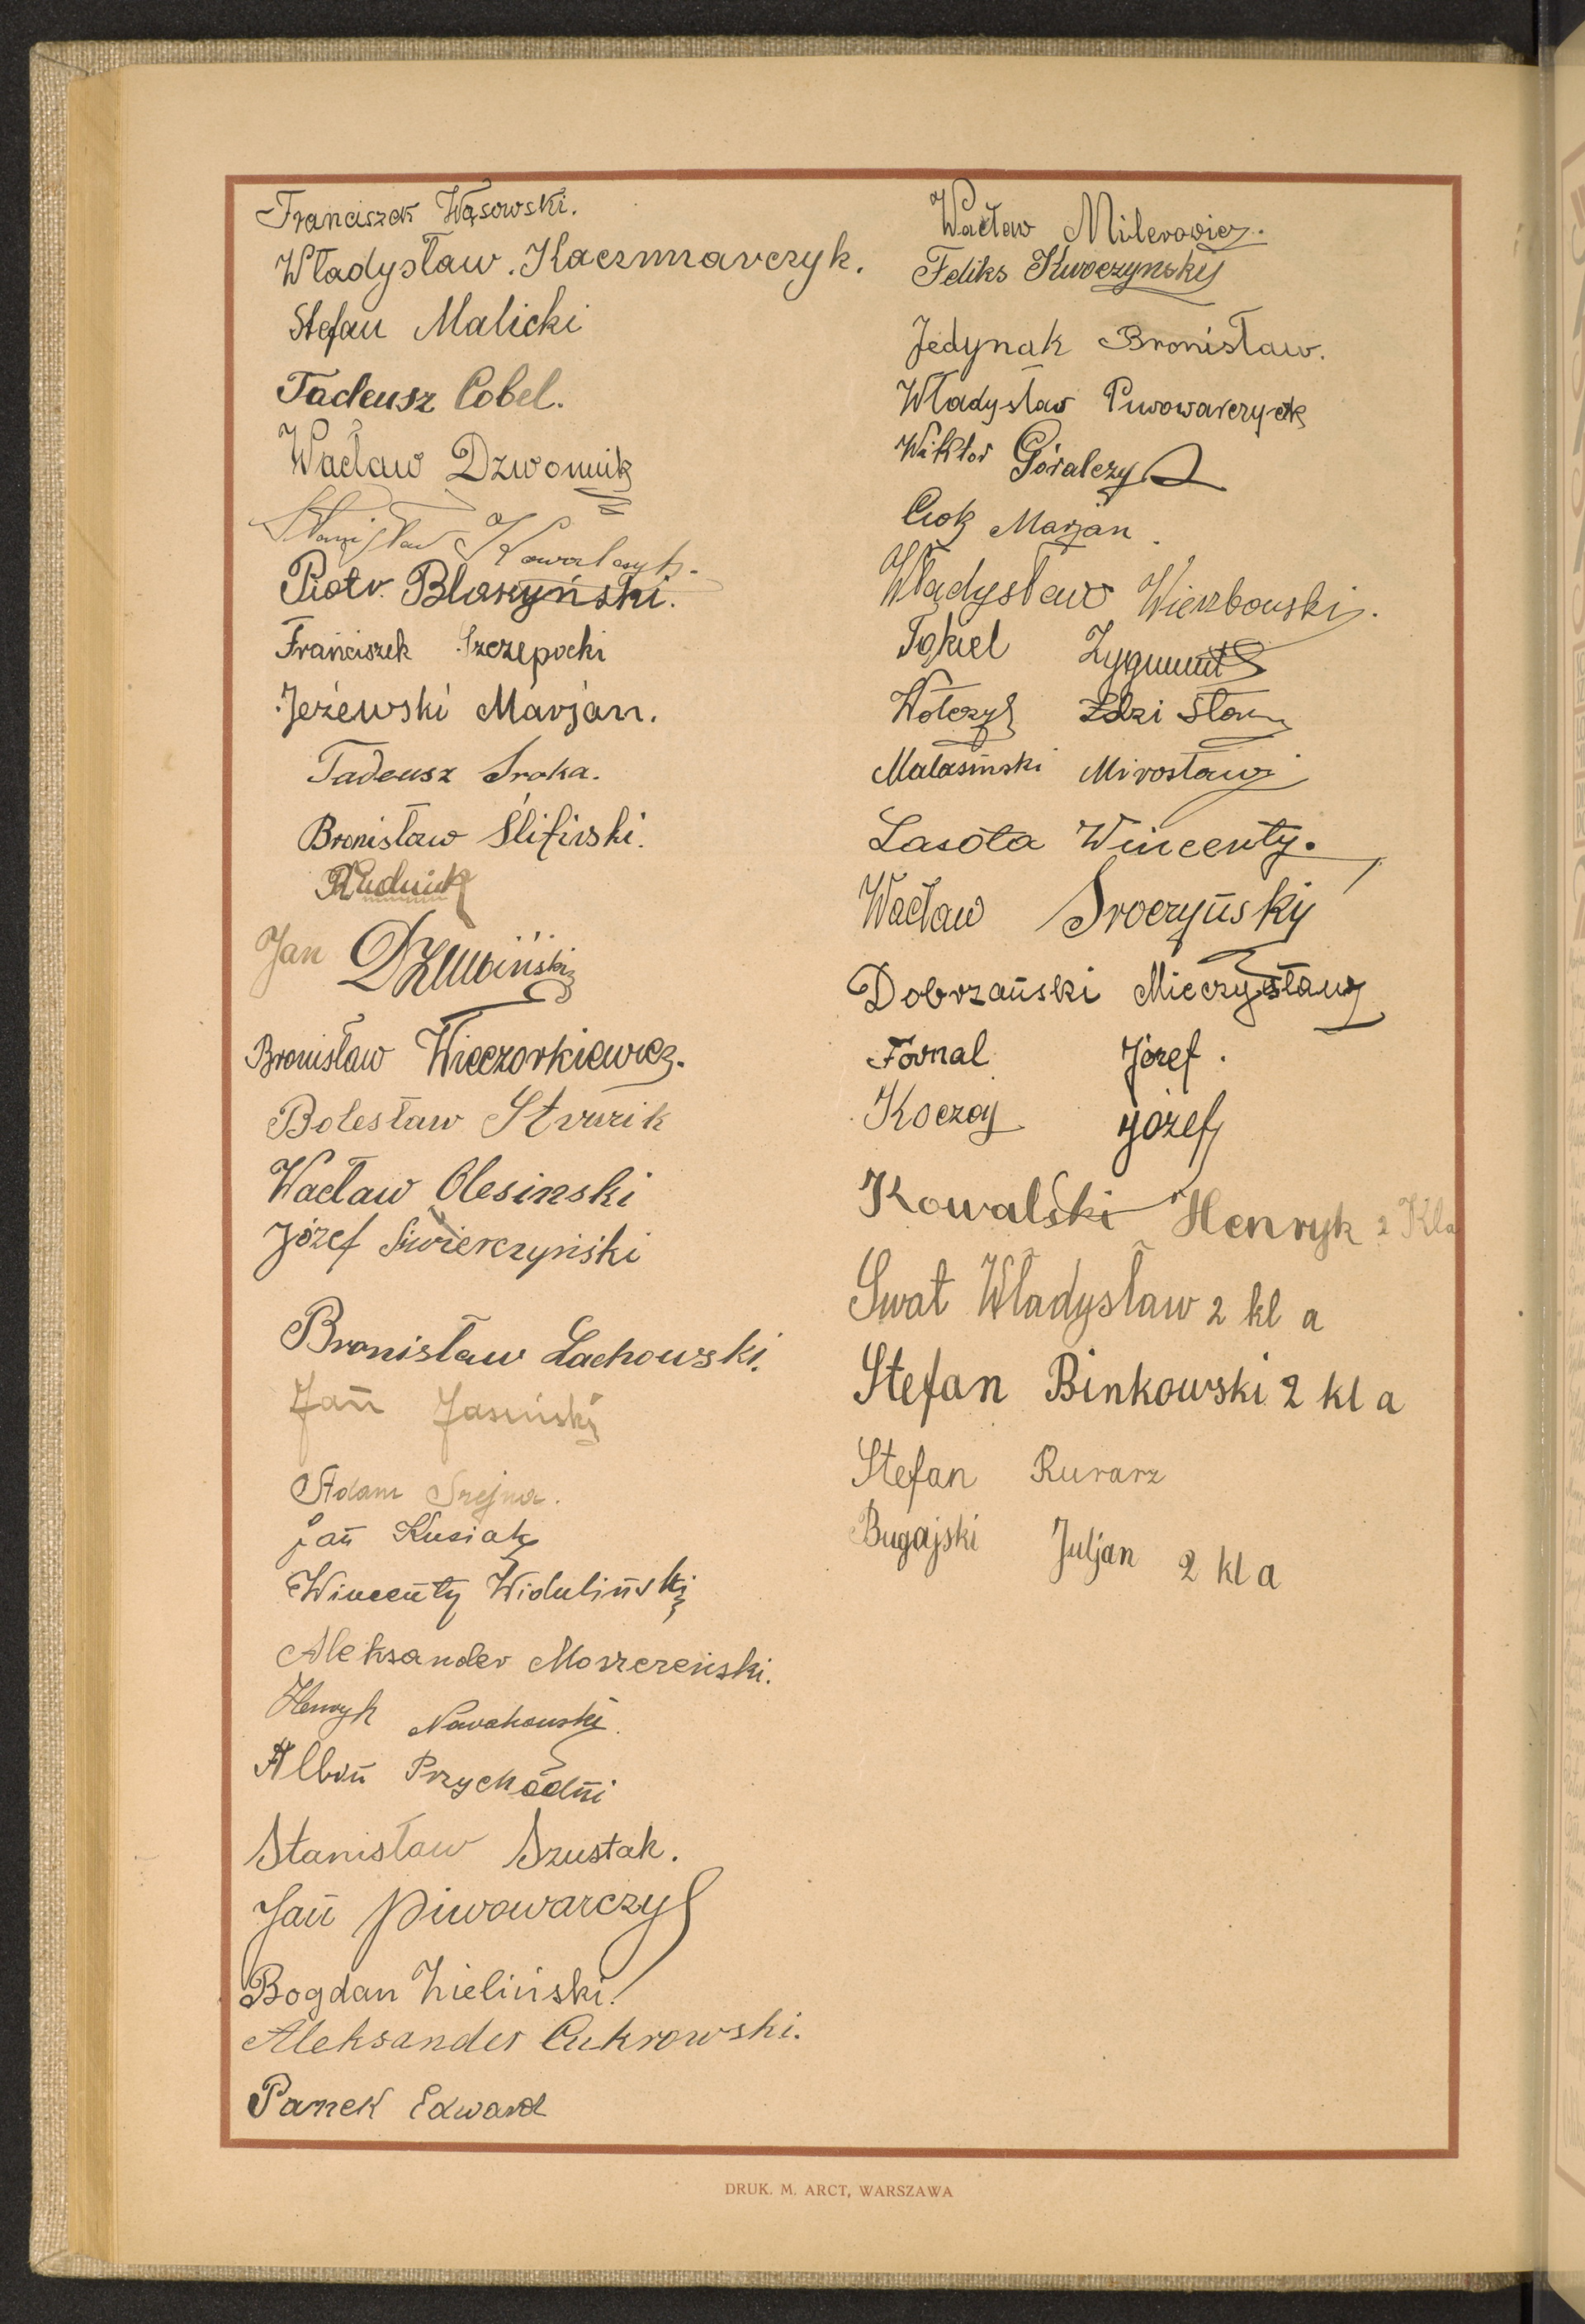 Franciszek Wąsowski.
Władysław Kaczmarczyk.
Stefan Malicki
Tadeusz Cobel.
Wacław Dzwonnik
Stanisław Kowalczyk.
Piotr Blaszyński.
Franciszek Szczepocki
Jeżewski Marjan.
Tadeusz Sroka.
Bronisław Ślifirski.
Rudnik
Jan
Bronisław Wieczorkiewicz.
Bolesław Struzik
Wacław Olesinski
Józef Świerczyński
Bronisław Lachowski.
Jan Jasiński
Adam Szejna.
Jan Kusiak
Wincenty Widuliński
Aleksander Moszczeński.
Henryk Nowakowski.
Albin Przychodni
Stanisław Szustak.
Jan Piwowarczyk
Bogdan Zieliński.
Aleksander Cukrowski.
Panek Edward
Wacław Milerowicz.
Feliks Kwoczynski
Jedynak Bronisław.
Władysław Piwowarczyk
Wiktor Góralczyk
Ciok Marjan.
Władysław Wierzbowski.
Tokiel Zygmunt
Wołczyk Zdzisław
Malasiński Mirosław
Lasota Wincenty.
Wacław Sroczyński
Dobrzański Mieczysław
Fornal Józef.
Koczoy Józef
Kowalski Henryk 2 Kla
Swat Władysław 2 kl a
Stefan Binkowski 2 kl a
Stefan Rurarz
Bugajski Juljan 2 kl a
DRUK. M. ARCT, WARSZAWA